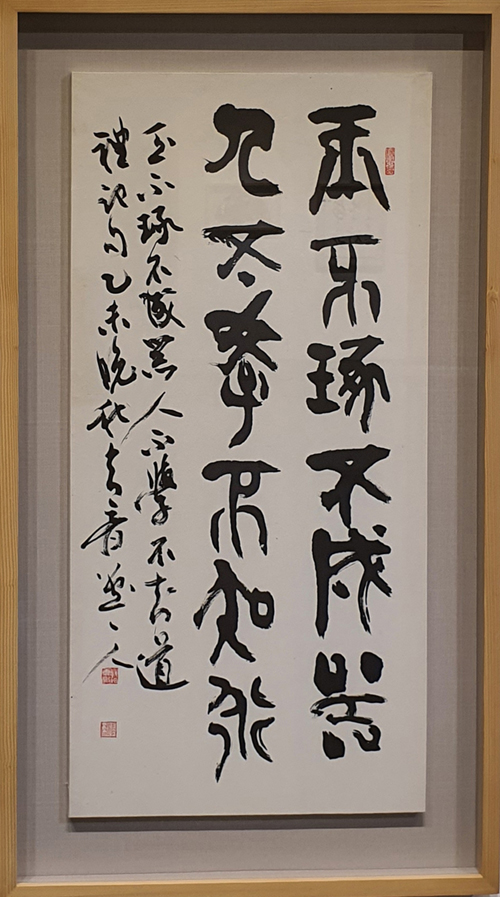 玉不琢不成器
人不學不知道
玉不琢不成器人不學不知道
禮記句乙未晚秋人